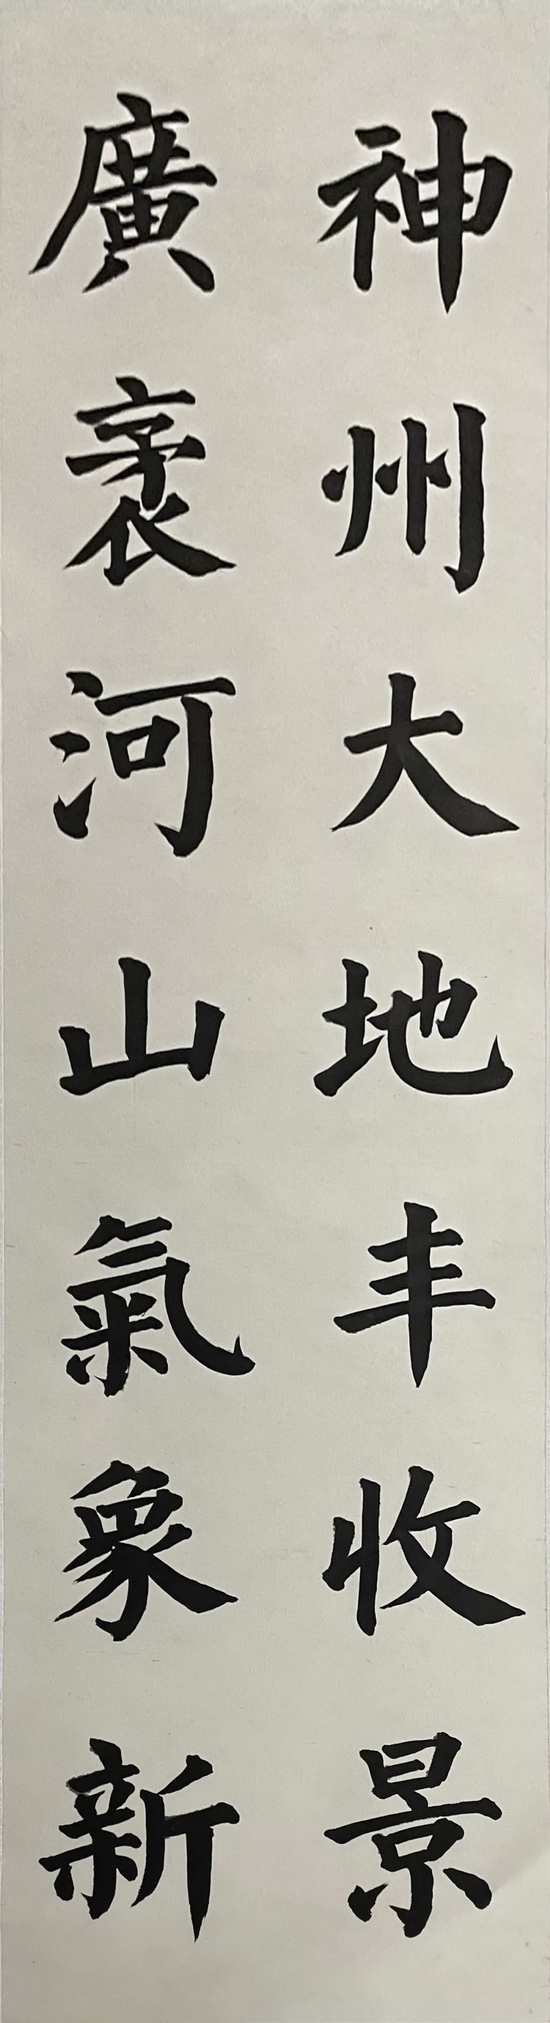 神州大地丰收景
廣袤河山氣象新